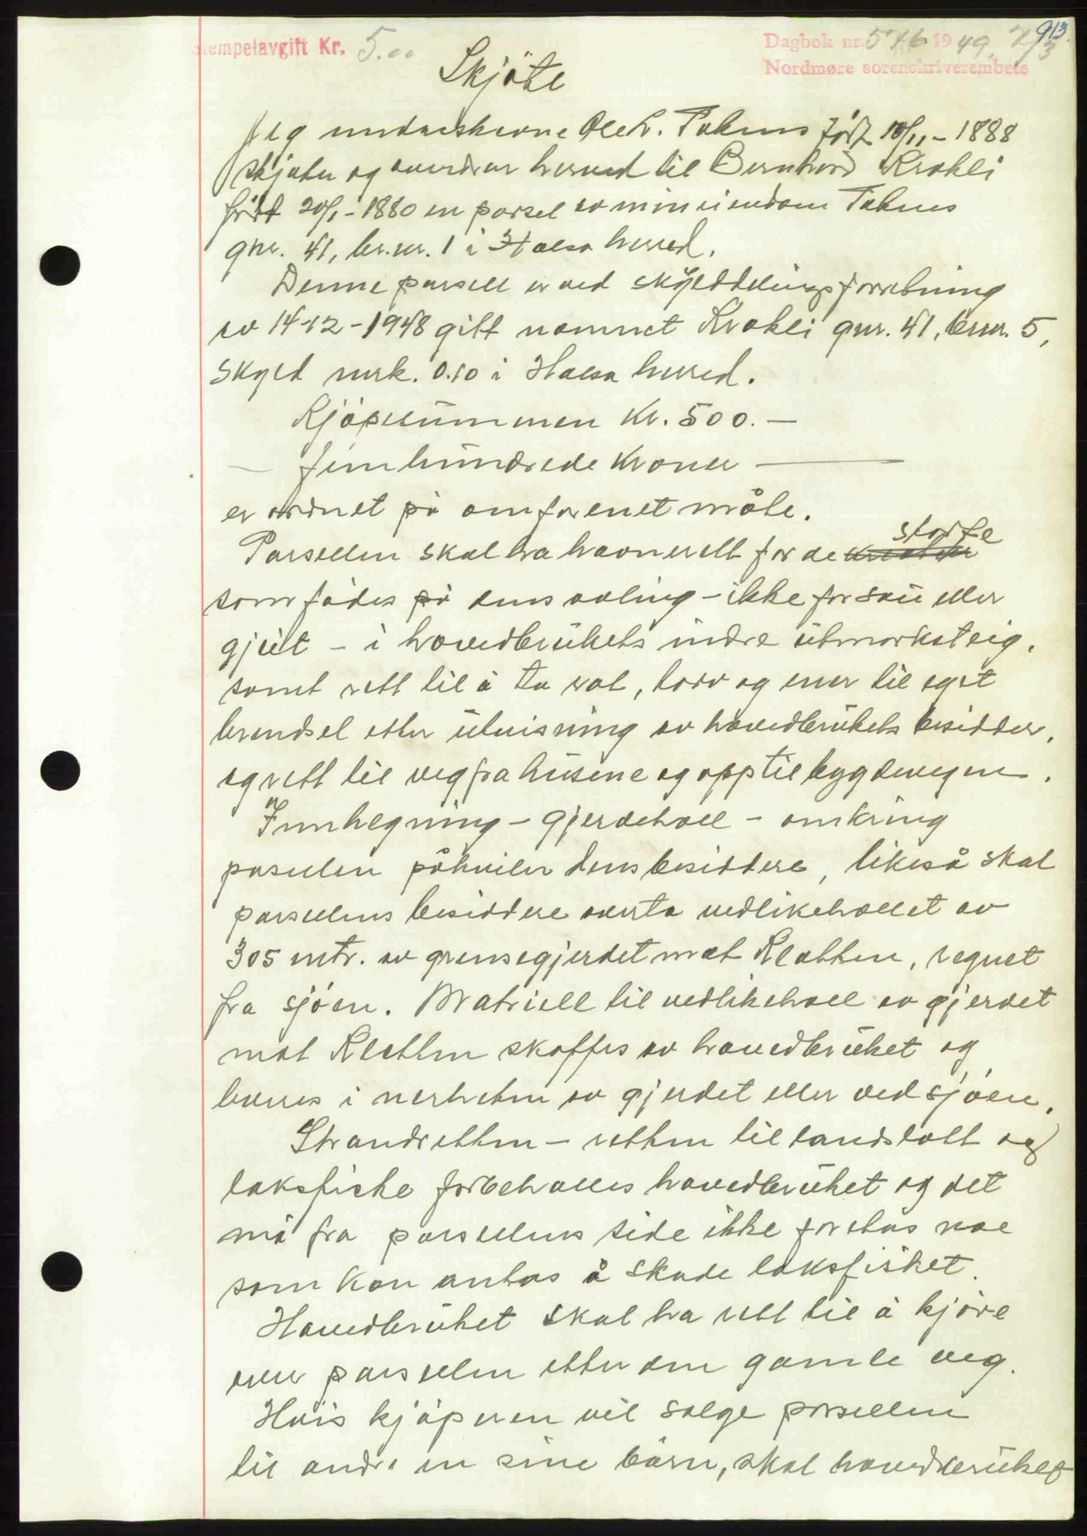 913.
Stempelavgift Kr. 5.00
Dagbok nr. 576 1949, 2/3
Nordmøre sorenskriverembete
Skjöte
Jeg underskrevne Ole H. Taknes född 10/11 - 1888
skjøter og overdrar herved til Bernhard Krokli
född 20/1 - 1880 en parsel av min eiendom Taknes
gnr. 41, br.nr. 1 i Halsa herred.
Denne parsell er ved skylddelingsforretning
av 14-12-1948 gitt namnet Krokli gnr. 41, brnr. 5,
Skyld mrk. 0.10 i Halsa herred.
Kjöpesummen Kr. 500.-
- femhundrede Kroner -
er ordnet på omforenet måte.
Parsellen skal ha havnerett for de storfe
som födes på dens avling - ikke for sau eller
gjeit - i hovedbrukets indre utmarksteig.
samt rett til å ta ved, torv og ener til eget
brendsel etter utvisning av hovedbrukets besidder,
og rett til veg fra husene og opp til bygdevegen.
Innhegning - gjerdehold - omkring
parsellen påhviler dens besiddere, likeså skal
parsellens besiddere overta vedlikeholdet av
305 mtr. av grensegjerdet mot Kletten, regnet
fra sjöen. Matriell til vedlikehold av gjerdet
mot Kletten skaffes av hovedbruket og
leveres i nerheten av gjerdet eller ved sjöen.
Strandretten - retten til landslott og
laksfiske forbeholdes hovedbruket og det
må fra parsellens side ikke foretas noe
som kan antas å skade laksfisket.
Hovedbruket skal ha rett til å kjöre
over parsellen etter den gamle veg.
Hvis kjöperen vil selge parsellen
til andre en sine barn, skal hovedbruket